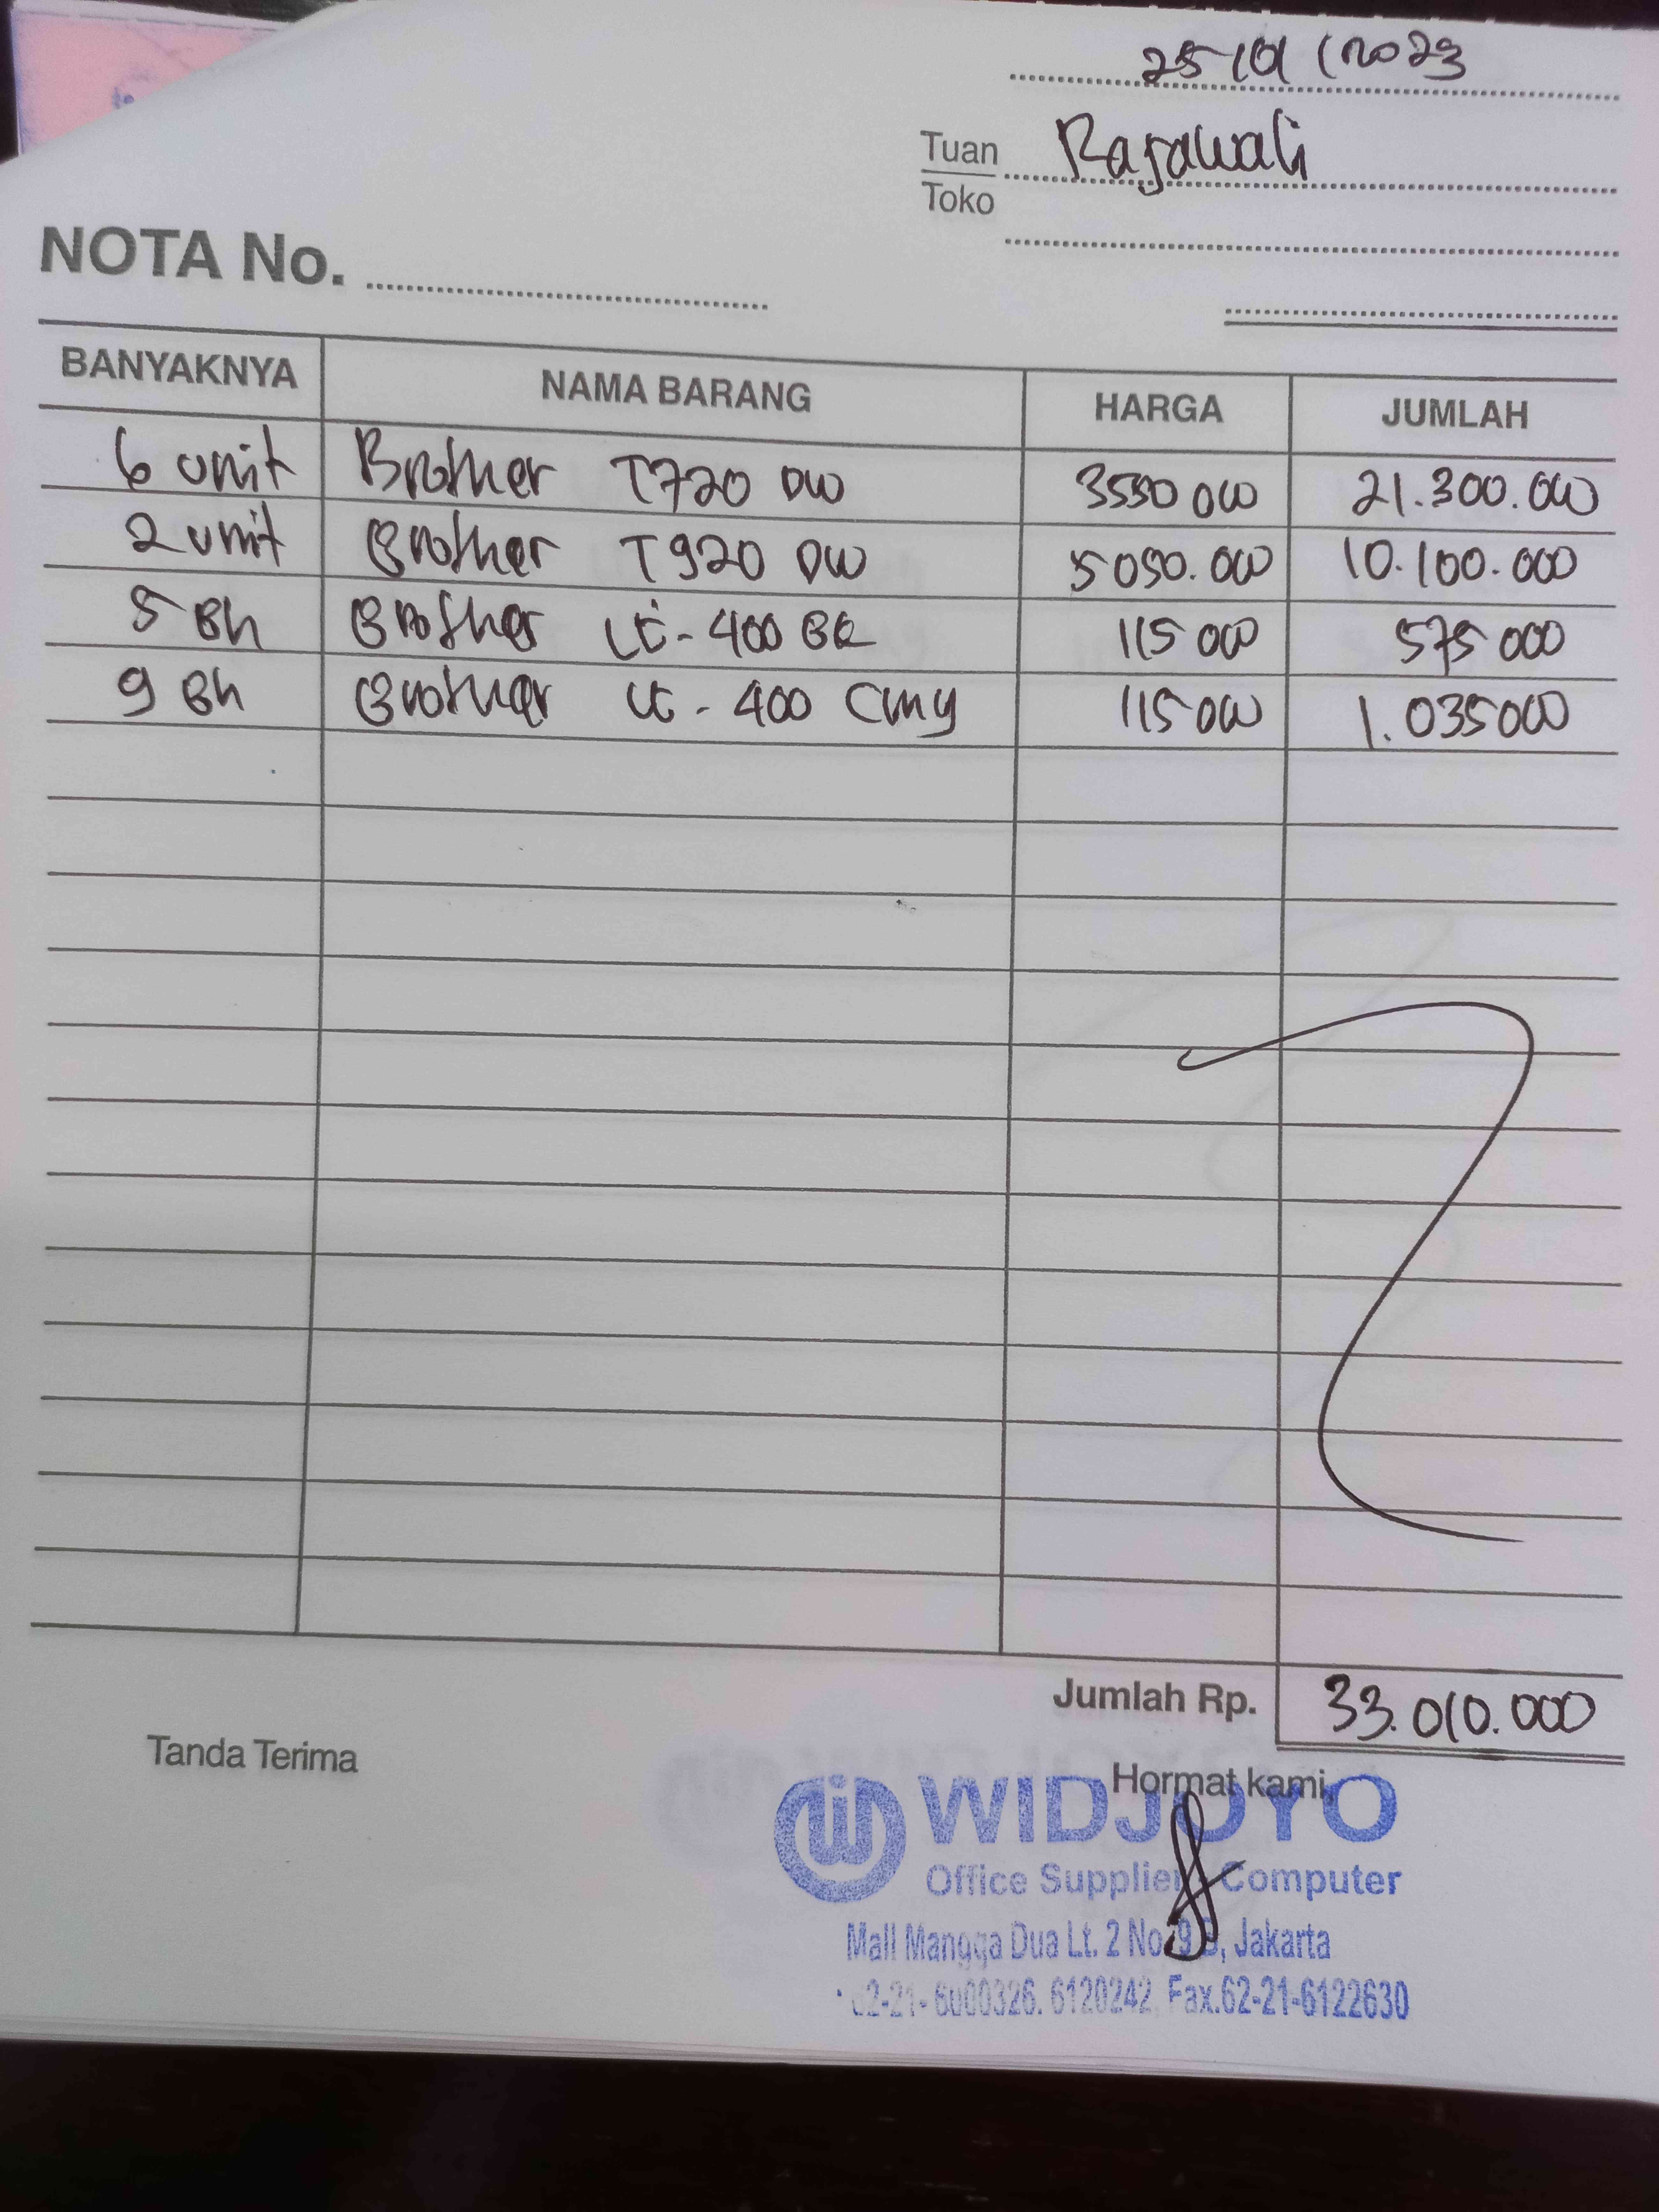 25/01/2023
Tuan Rajawali
Toko
NOTA No.
BANYAKNYA NAMA BARANG HARGA JUMLAH
6 unit Brother T720 DW 3550 000 21.300.000
2 unit Brother T920 DW 5050.000 10.100.000
5 Bh Brother LC-400 BK 115 000 575 000
9 Bh Brother LC-400 CMY 115 000 1.035 000
Jumlah Rp. 33.010.000
Tanda Terima Hormat kami,
WIDJOYO
Office Supplier Computer
Mall Mangga Dua Lt. 2 No. Jakarta
6120242, Fax.62-21-6122630